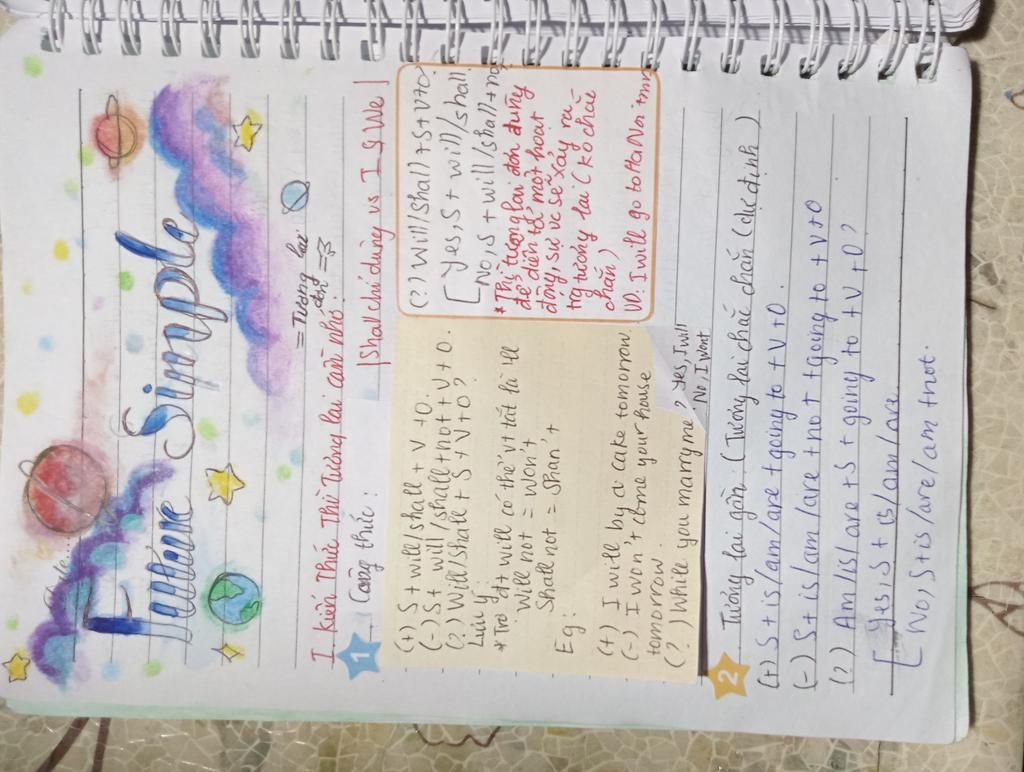 Future Simple
= Tương lai
đơn =3
I. kiến Thức Thì Tương lai cần nhớ:
1 Công thức:
|Shall chỉ dùng vs I & We|
(+) S + will/shall + V + O.
(-) S + will/shall + not + V + O.
(?) Will/Shall + S + V + O?
Lưu ý
* Trợ đt will có thể vt tắt là 'll
Will not = Won't
Shall not = Shan't
Eg:
(+) I will by a cake tomorrow
(-) I won't come your house
tomorrow.
(?) While you marry me? Yes, I will
No, I Wont
(?) Will/Shall + S + V + O?
Yes, S + will/shall.
No, S + will/shall + not
* Thì tương lai đơn dùng
để diễn tả một hoạt
động, sự vc sẽ xảy ra
trg tương lai (ko chắc
chắn)
VD. I will go to Ha Noi tmr
2 Tương lai gần: (Tương lai chắc chắn (dự định)
(+) S + is/am/are + going to + V + O.
(-) S + is/am/are + not + going to + V + O
(?) Am/is/are + S + going to + V + O?
Yes, S + is/am/are.
No, S + is/are/am + not.